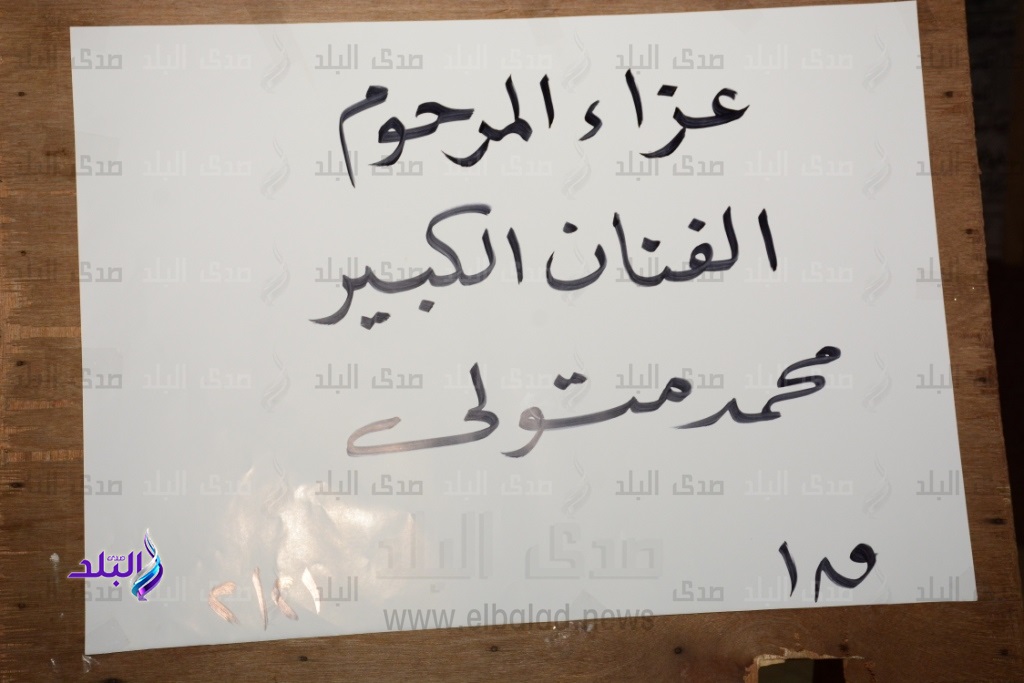 عزاء المرحوم
الفنان الكبير
محمد متولى
صدى البلد
www.elbalad.news